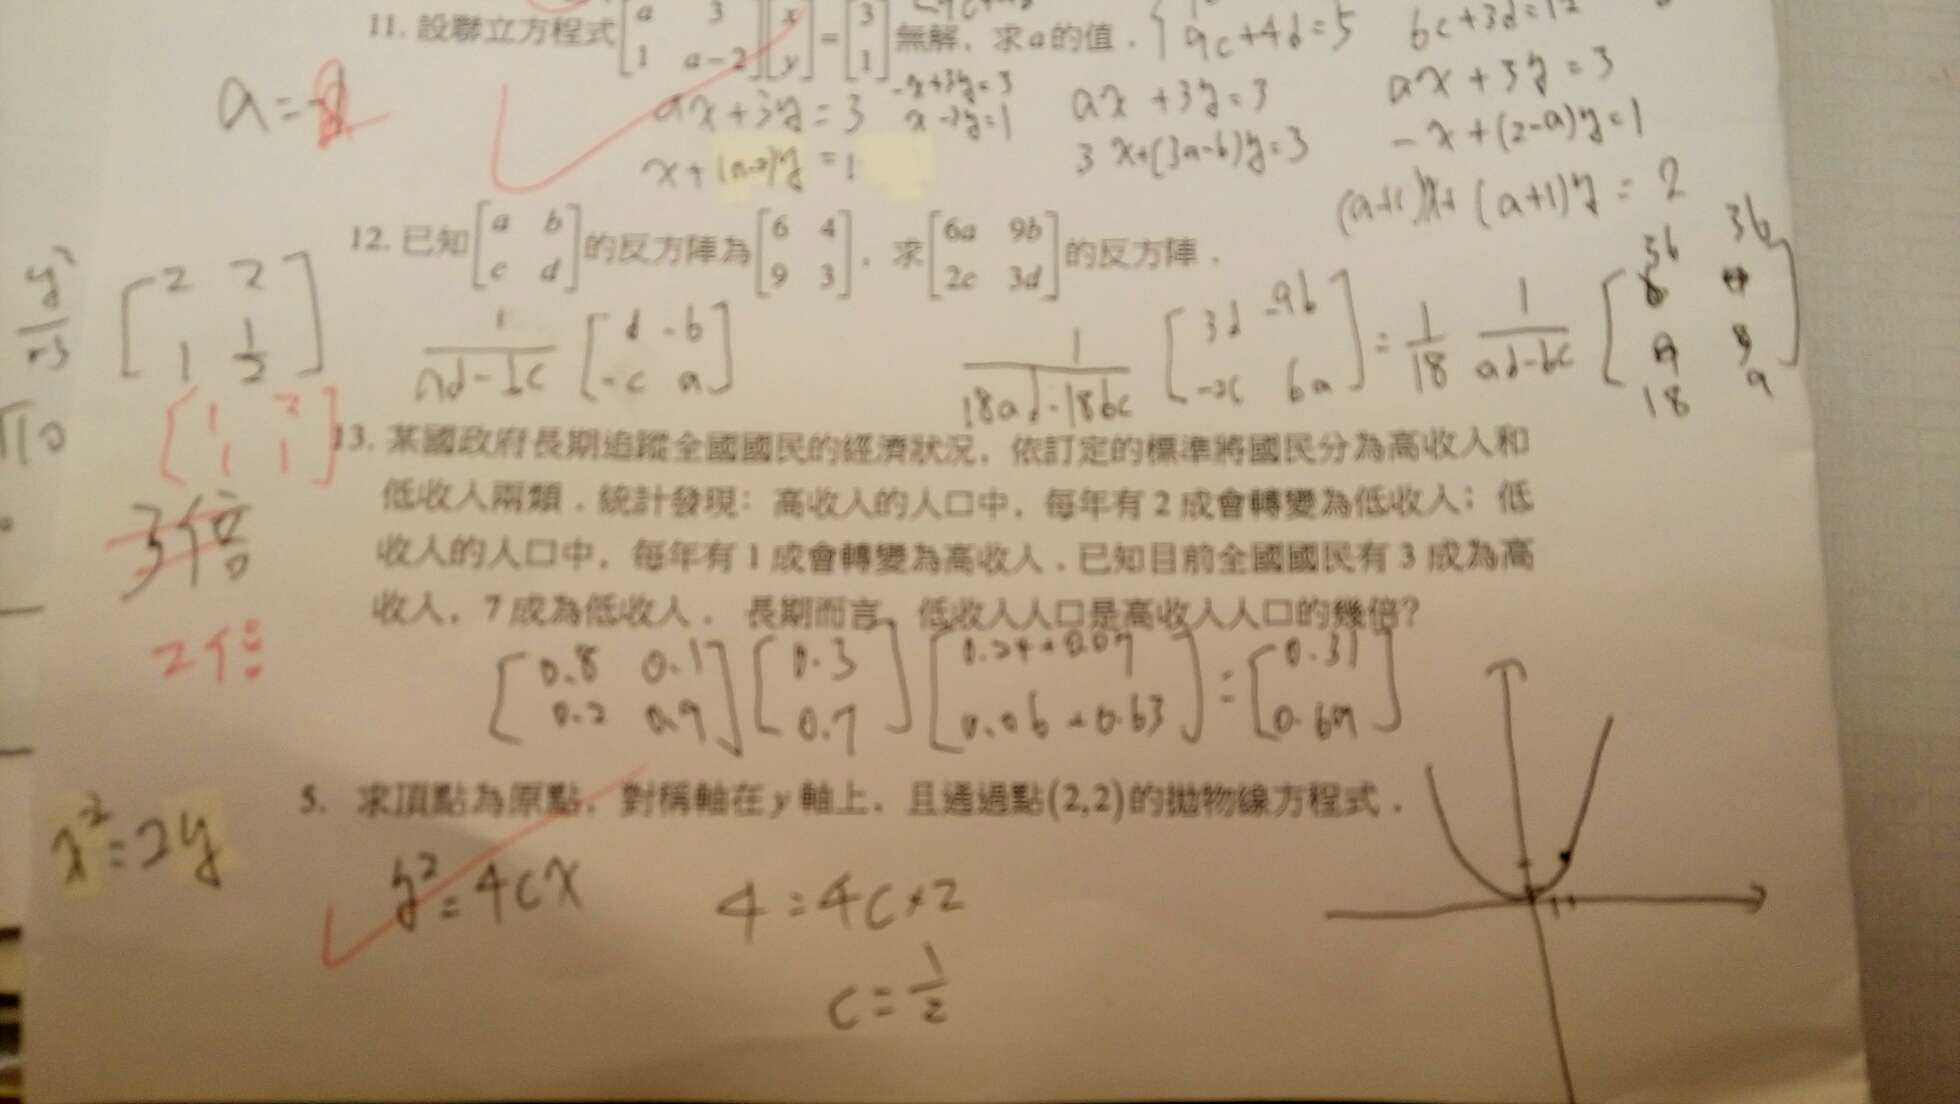 11. 設聯立方程式[a 3 1 a-2][x y]=[3 1]無解，求a的值．
9c+4d=5
a=-1
ax+3y=3
-x+3y=3
x-3y=1
ax+3y=3
ax+3y=3
x+(a-2)y=1
3x+(3a-6)y=3
-x+(2-a)y=1
(a+1)x+(a+1)y=2
12. 已知[a b c d]的反方陣為[6 4 9 3]，求[6a 9b 2c 3d]的反方陣．
[2 2 1 1/2]
1/(ad-bc) [d -b -c a]
1/(18ad-18bc) [3d -9b -2c 6a] = 1/18 1/(ad-bc)
36 36
18 9
[1 2 1 1]
13. 某國政府長期追蹤全國國民的經濟狀況，依訂定的標準將國民分為高收入和
低收入兩類．統計發現：高收入的人口中，每年有2成會轉變為低收入；低
收入的人口中，每年有1成會轉變為高收入．已知目前全國國民有3成為高
收入，7成為低收入．長期而言，低收入人口是高收入人口的幾倍？
3倍
2倍
[0.8 0.1 0.2 0.9][0.3 0.7][0.24+0.07 0.06+0.63]=[0.31 0.69]
5. 求頂點為原點，對稱軸在y軸上，且通過點(2,2)的拋物線方程式．
x²=2y
y²=4cx
4=4c×2
c=1/2